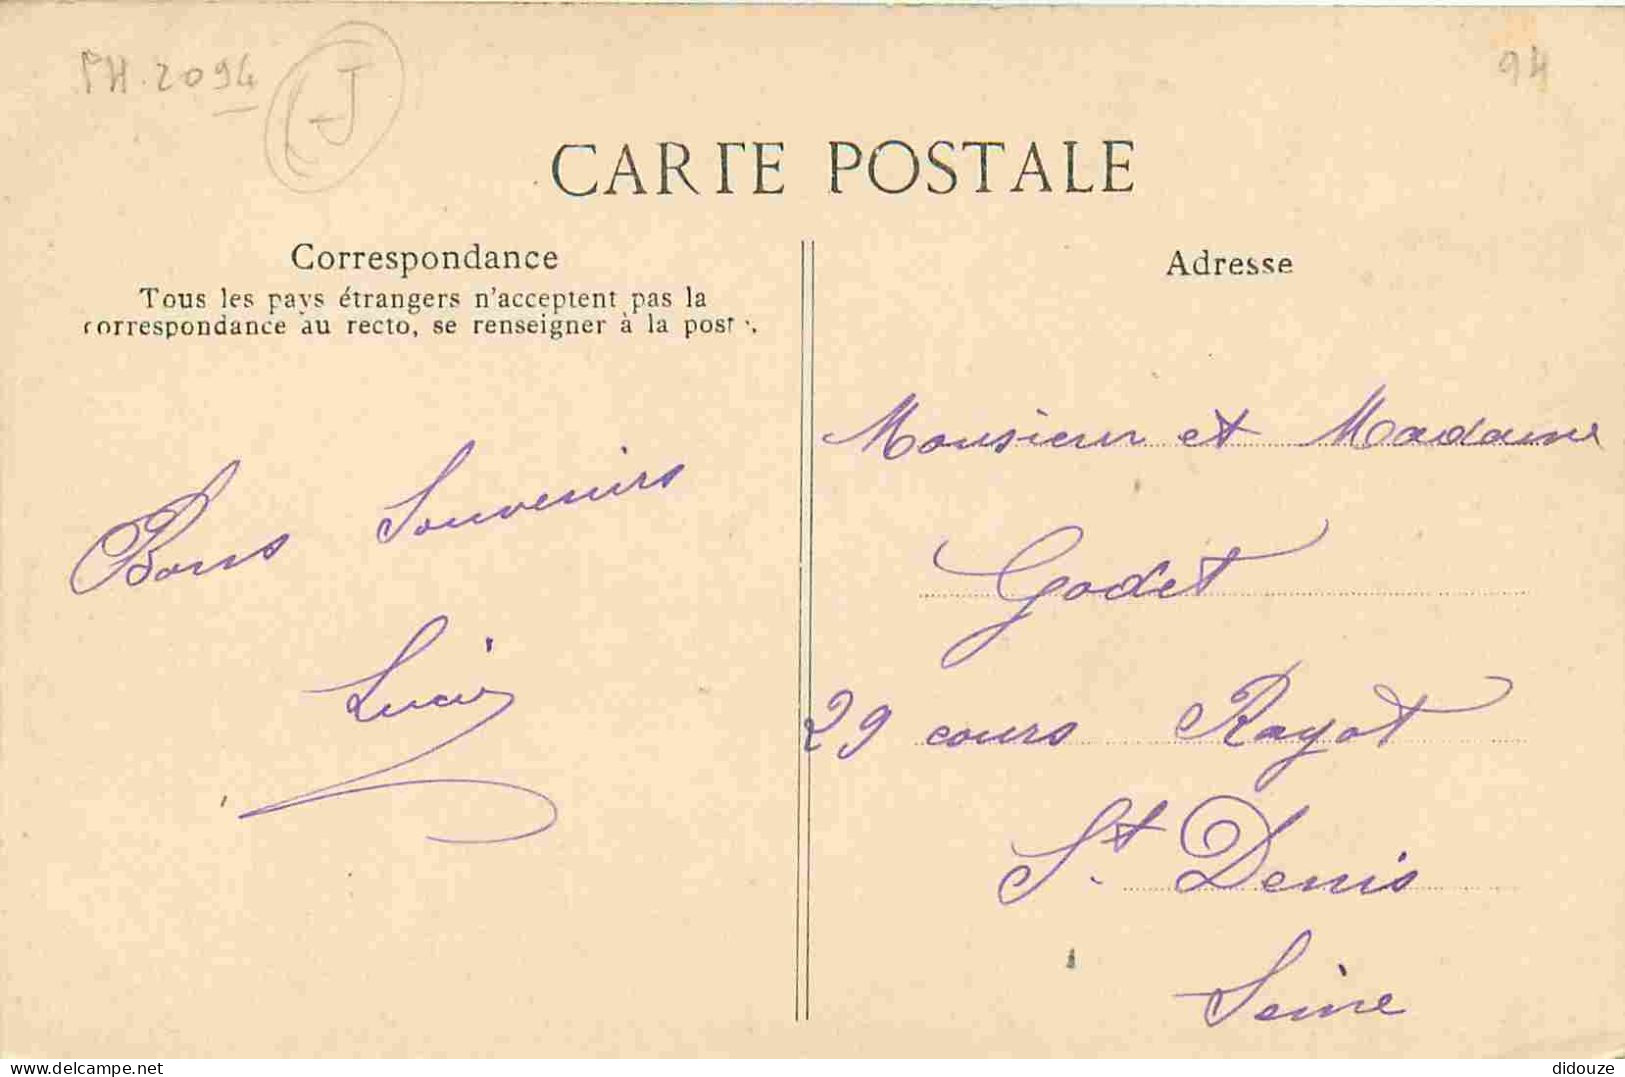 PH.2094
J
94
CARTE POSTALE
Correspondance
Tous les pays étrangers n'acceptent pas la
correspondance au recto, se renseigner à la poste.
Bons Souvenirs
Lucie
Adresse
Monsieur et Madame
Godet
29 cours Ragot
St. Denis
Seine
delcampe.net
didouze